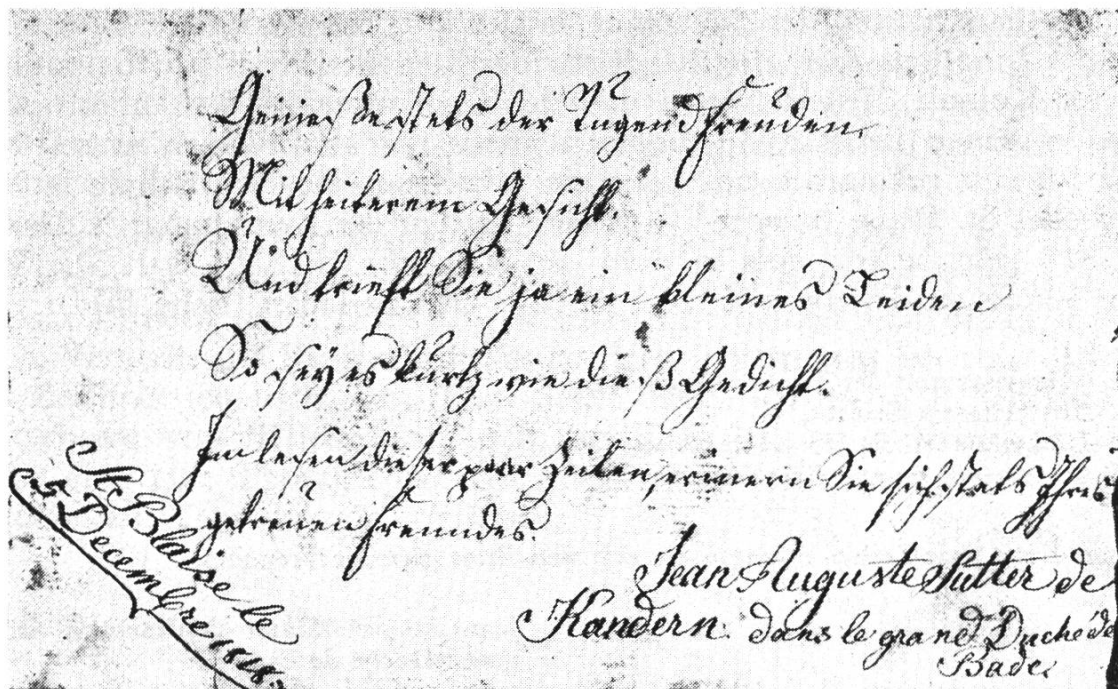 Genieße stets der Tugend Freuden
Mit heiterem Gesicht.
Und trieft Sie ja ein kleines Leiden
So sey es kurtz wie dieß Gedicht.
Im lesen dieser paar Zeilen, erinnern Sie sich stets Ihres
getreuen Freundes.
Jean Auguste Sutter de
Kandern. dans le grand Duché de
Bade.
St. Blaise le
5 Decembre 1818.